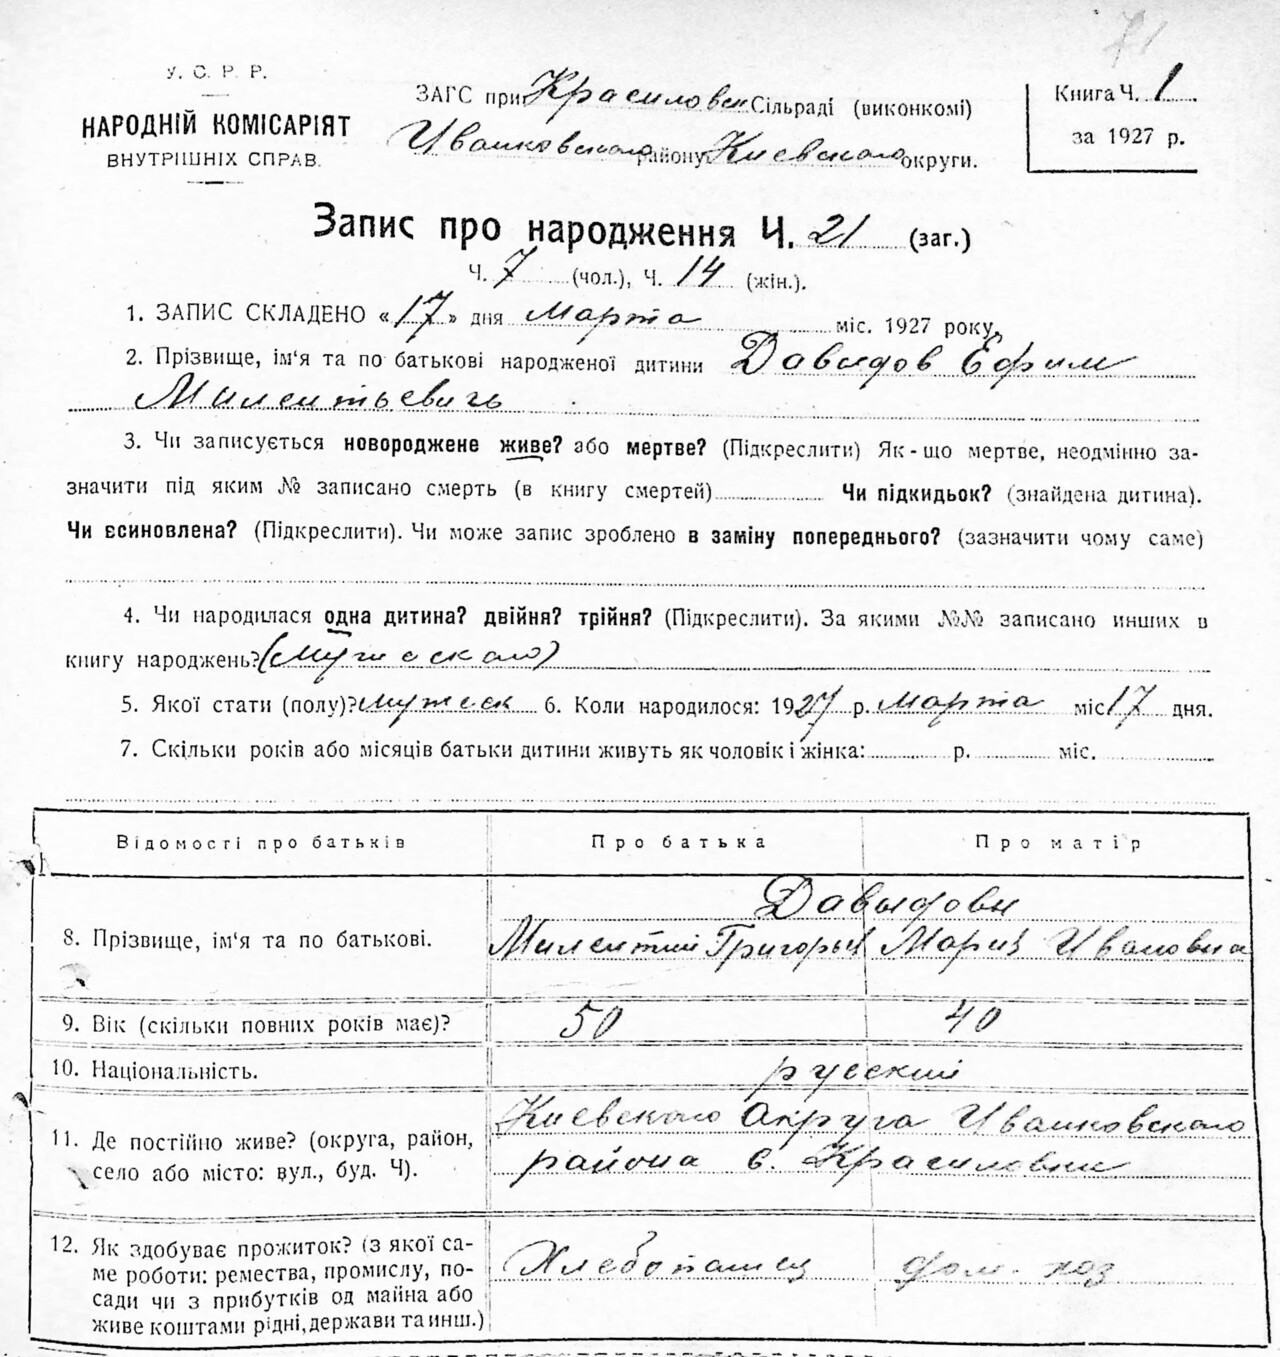 71
У. С. Р. Р.
НАРОДНІЙ КОМІСАРІЯТ
ВНУТРІШНІХ СПРАВ.
ЗАГС при Красиловск Сільраді (виконкомі)
Иванковского району Киевского округи.
Книга Ч. 1
за 1927 р.
Запис про народження Ч. 21 (заг.)
Ч. 7 (чол.), Ч. 14 (жін.).
1. ЗАПИС СКЛАДЕНО «17» дня Марта міс. 1927 року,
2. Прізвище, ім'я та по батькові народженої дитини Давыдов Ефим
Милентьевичь
3. Чи записується новороджене живе? або мертве? (Підкреслити) Як-що мертве, неодмінно за-
значити під яким № записано смерть (в книгу смертей) Чи підкидьок? (знайдена дитина).
Чи всиновлена? (Підкреслити). Чи може запис зроблено в заміну попереднього? (зазначити чому саме)
4. Чи народилася одна дитина? двійня? трійня? (Підкреслити). За якими №№ записано инших в
книгу народжень? (Мужескаго)
5. Якої стати (полу)? мужеск 6. Коли народилося: 1927 р. Марта міс 17 дня.
7. Скільки років або місяців батьки дитини живуть як чоловік і жінка: р. міс.
Відомості про батьків Про батька Про матір
Давыдовы
8. Прізвище, ім'я та по батькові. Милентий Григорьев Мария Ивановна
9. Вік (скільки повних років має)? 50 40
10. Національність. русский
11. Де постійно живе? (округа, район, Киевского Округа Иванковского
село або місто: вул., буд. Ч). района с. Красиловки
12. Як здобуває прожиток? (з якої са- Хлебопашец дом. хоз
ме роботи: ремества, промислу, по-
сади чи з прибутків од майна або
живе коштами рідні, держави та инш.)